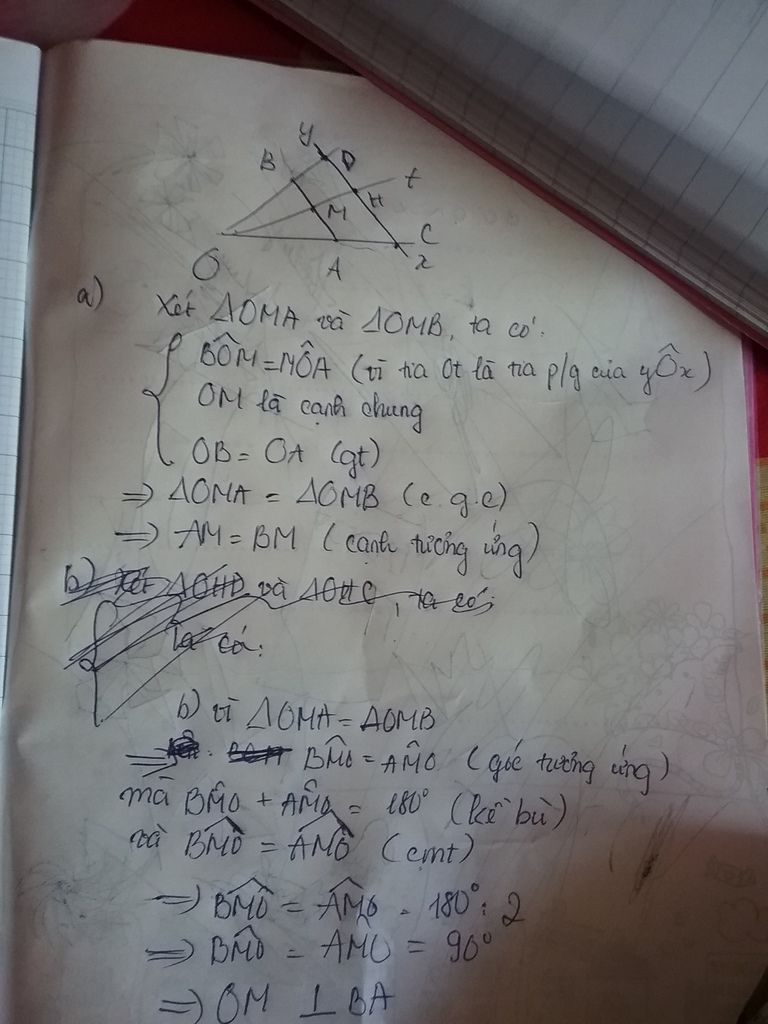 y
B
D
t
H
M
O
A
C
x
a) Xét ΔOMA và ΔOMB, ta có:
BÔM = MÔA (vì tia Ot là tia p/g của yÔx)
OM là cạnh chung
OB = OA (gt)
=> ΔOMA = ΔOMB (c.g.c)
=> AM = BM (cạnh tương ứng)
b) Xét ΔOHD và ΔOHC, ta có:
Ta có:
b) vì ΔOMA = ΔOMB
=> BM̂O = AM̂O (góc tương ứng)
mà BM̂O + AM̂O = 180° (kề bù)
và BM̂O = AM̂O (cmt)
=> BM̂O = AM̂O = 180° : 2
=> BM̂O = AM̂O = 90°
=> OM ⊥ BA